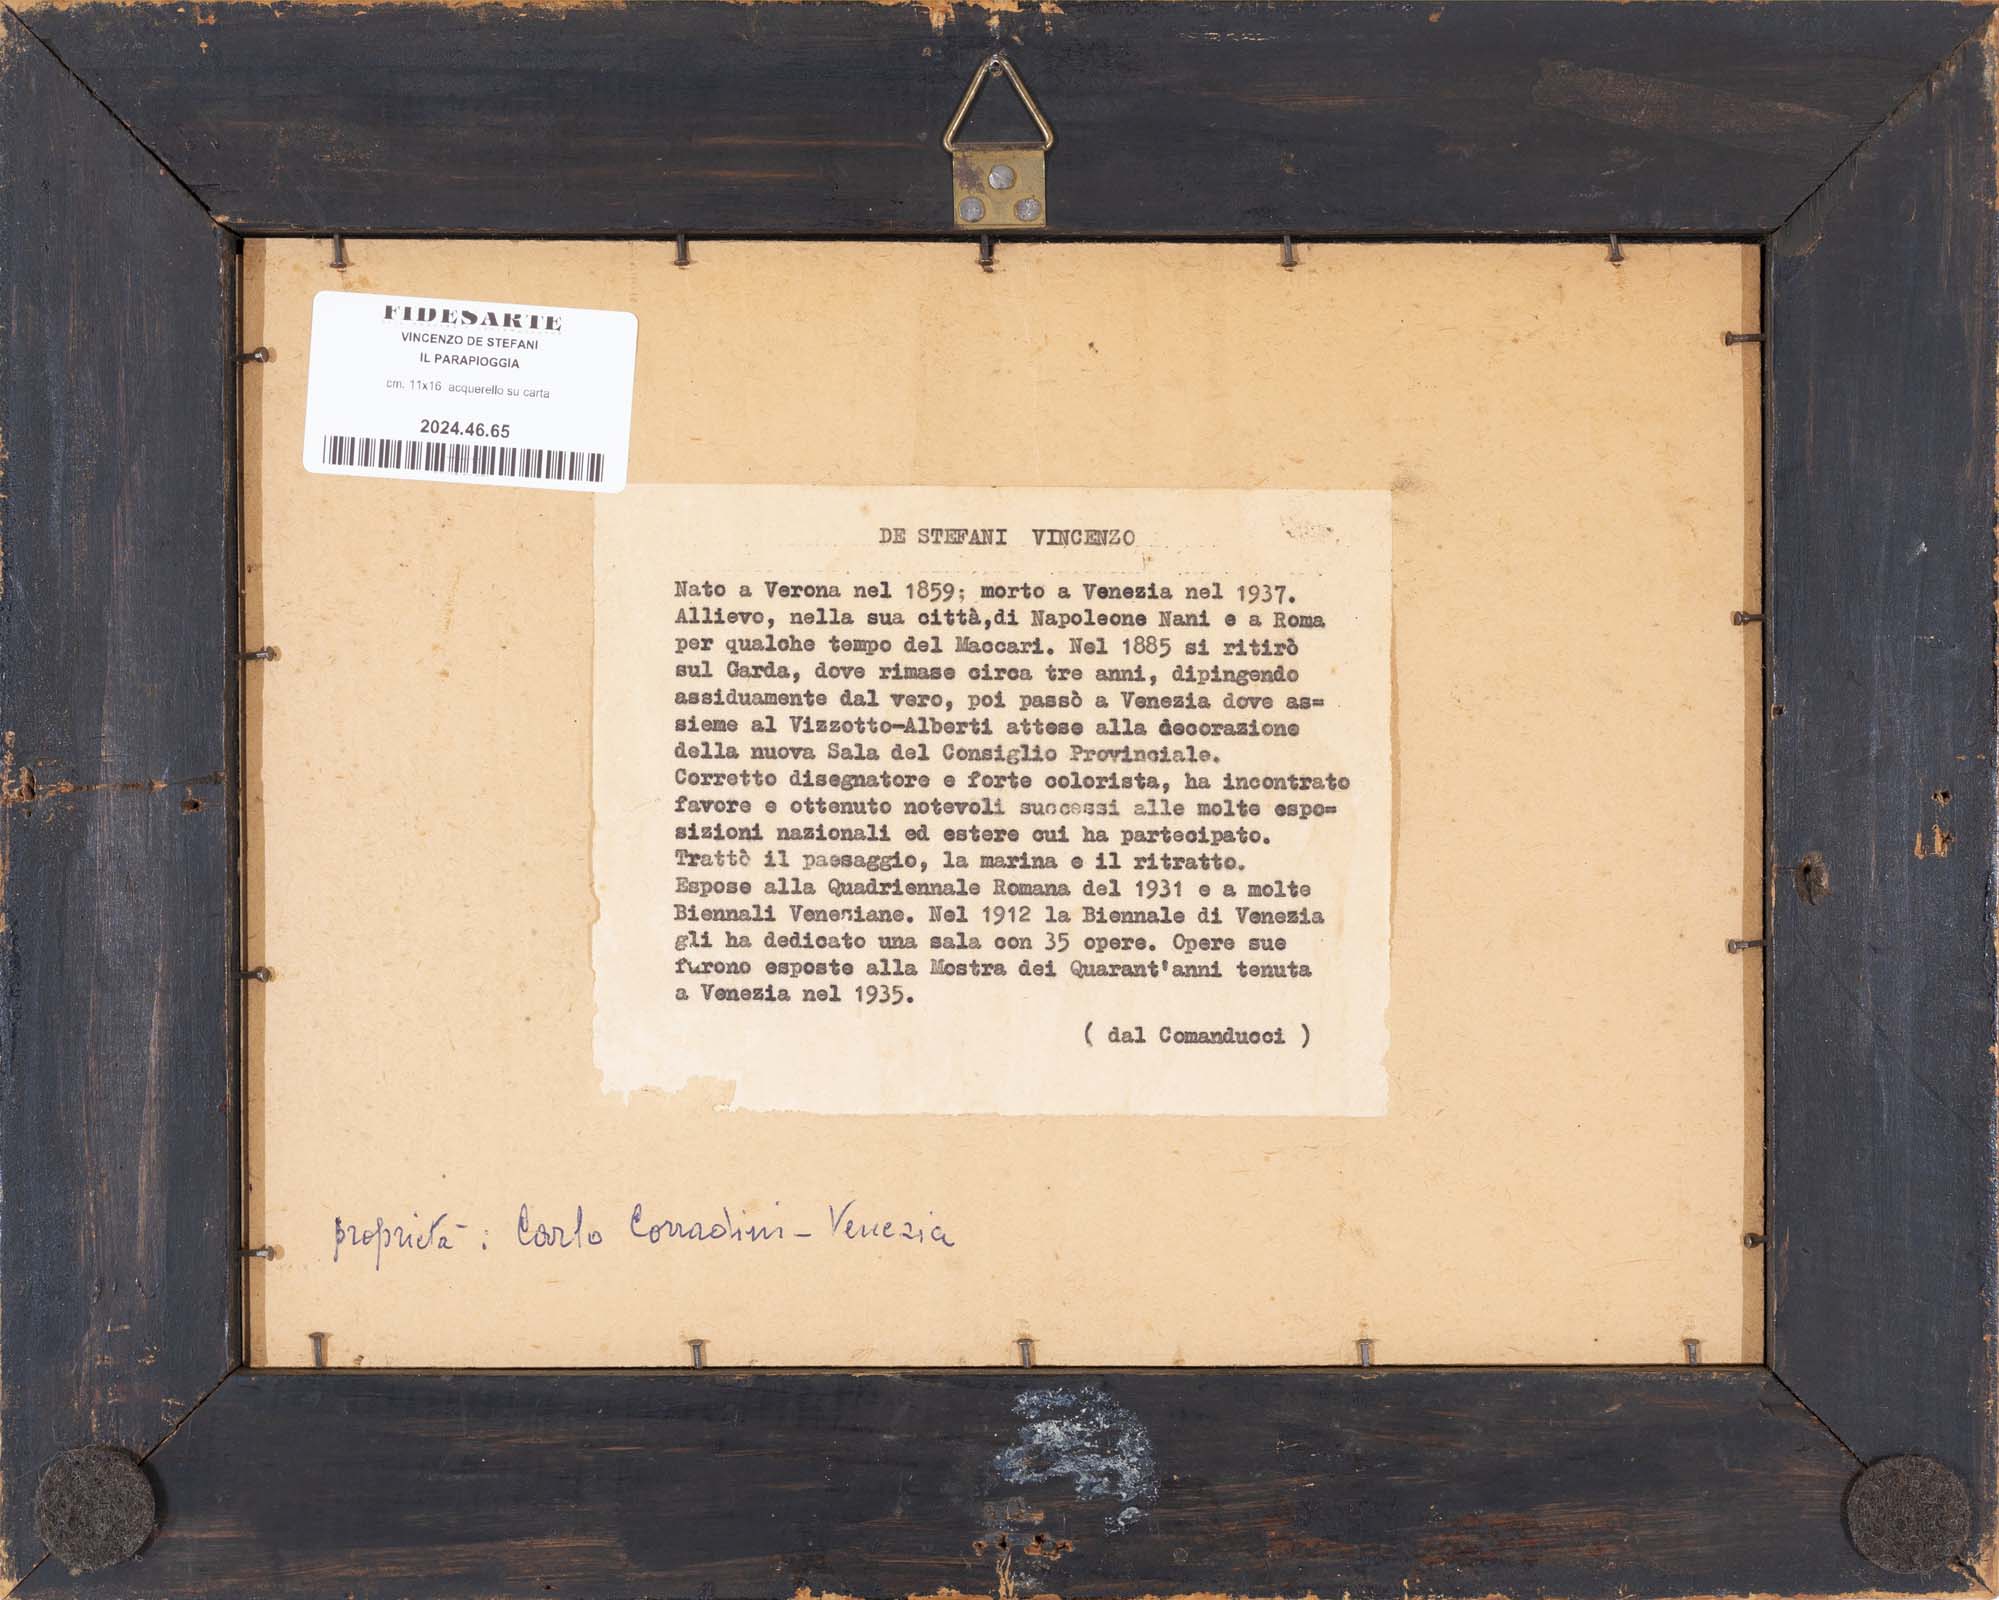 FIDESARTE
VINCENZO DE STEFANI
IL PARAPIOGGIA
cm. 11x16 acquerello su carta
2024.46.65
DE STEFANI VINCENZO
Nato a Verona nel 1859; morto a Venezia nel 1937.
Allievo, nella sua città,di Napoleone Nani e a Roma
per qualche tempo del Maccari. Nel 1885 si ritirò
sul Garda, dove rimase circa tre anni, dipingendo
assiduamente dal vero, poi passò a Venezia dove as=
sieme al Vizzotto-Alberti attese alla decorazione
della nuova Sala del Consiglio Provinciale.
Corretto disegnatore e forte colorista, ha incontrato
favore e ottenuto notevoli successi alle molte espo=
sizioni nazionali ed estere cui ha partecipato.
Trattò il paesaggio, la marina e il ritratto.
Espose alla Quadriennale Romana del 1931 e a molte
Biennali Veneziane. Nel 1912 la Biennale di Venezia
gli ha dedicato una sala con 35 opere. Opere sue
furono esposte alla Mostra dei Quarant'anni tenuta
a Venezia nel 1935.
( dal Comanducci )
proprietà : Carlo Corradini - Venezia